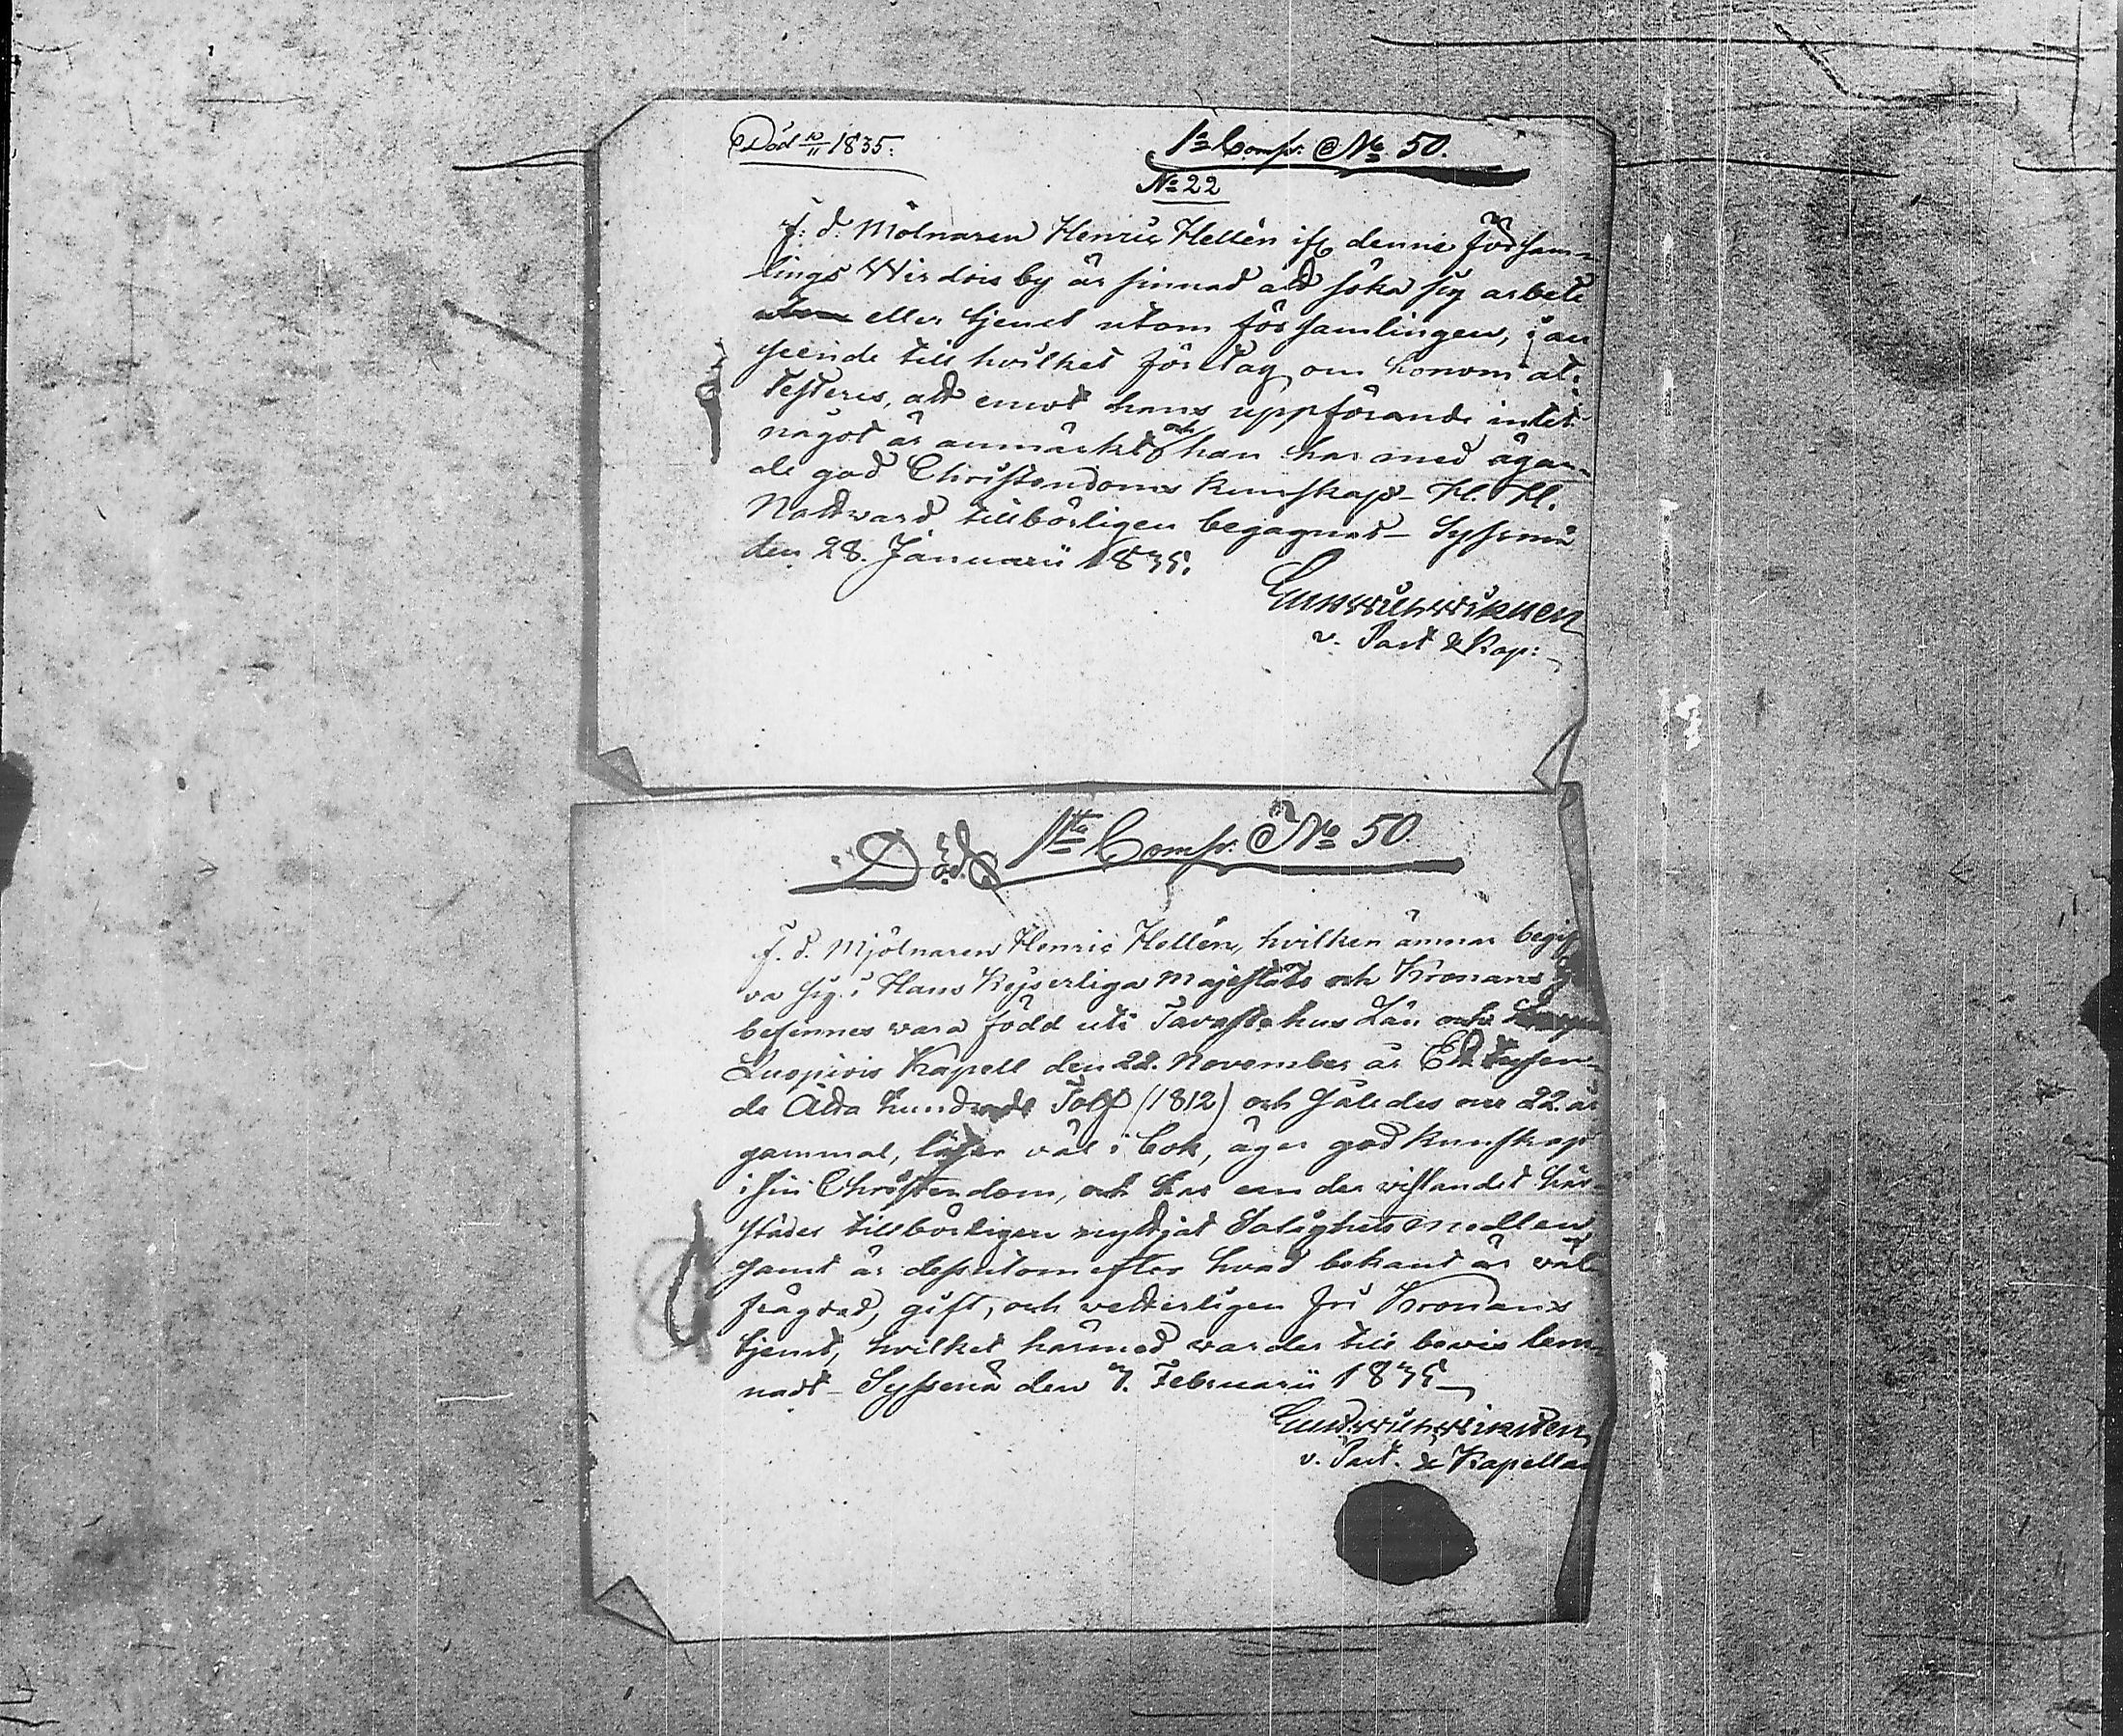 Död 10/11 1835.
1a Comp. No 50.
No 22
f. d. Mölnaren Henric Hellén ifr. denne församlings
Wirdois by är sinnad att söka sig arbete
eller tjenst utom församlingen, i an
seende till hvilket företag om honom at-
testeres, att emot hans uppförande intet
något är anmärkt och han har med ägan-
de god Christendoms kunskap H. H.
Nattvard tillbörligen begagnat – Syssmä
den 28. Januarii 1835.
v. Past & Kap:
Död 1ta Comp. No 50.
f. d. Mjölnaren Henric Hellén, hvilken ämnar begif
va sig i Hans Kejserliga Majestäts och Kronans
befinnes vara född uti Tavastehus Län och
Luopiois Kapell den 22. November år Ett tusen-
de Åtta hundrade Tolf (1812) och således nu 22. år
gammal, läser väl i bok, äger god kunskap
i sin Christendom, och har under vistandet här-
städes tillbörligen nyttjat Salighets medlen
samt är dessutom efter hvad bekant är väl
frägdad, gift, och vetterligen fri Kronans
tjenst, hvilket härmed varder till bevis lem-
nadt – Syssmä den 7. Februarii 1835
v. Past. & Kapellan